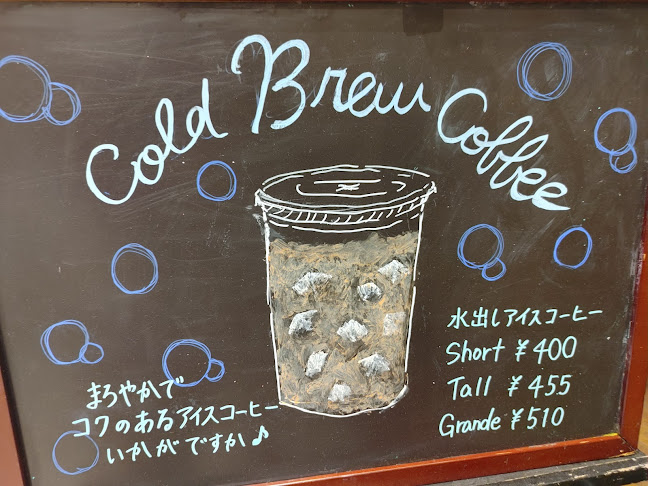 Cold Brew Coffee
水出しアイスコーヒー
Short ¥400
Tall ¥455
Grande ¥510
まろやかで
コクのあるアイスコーヒー
いかがですか♪